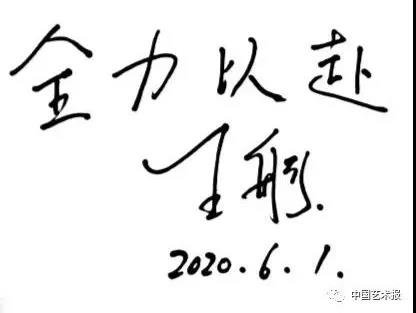 全力以赴
王彤
2020.6.1.
中国艺术报